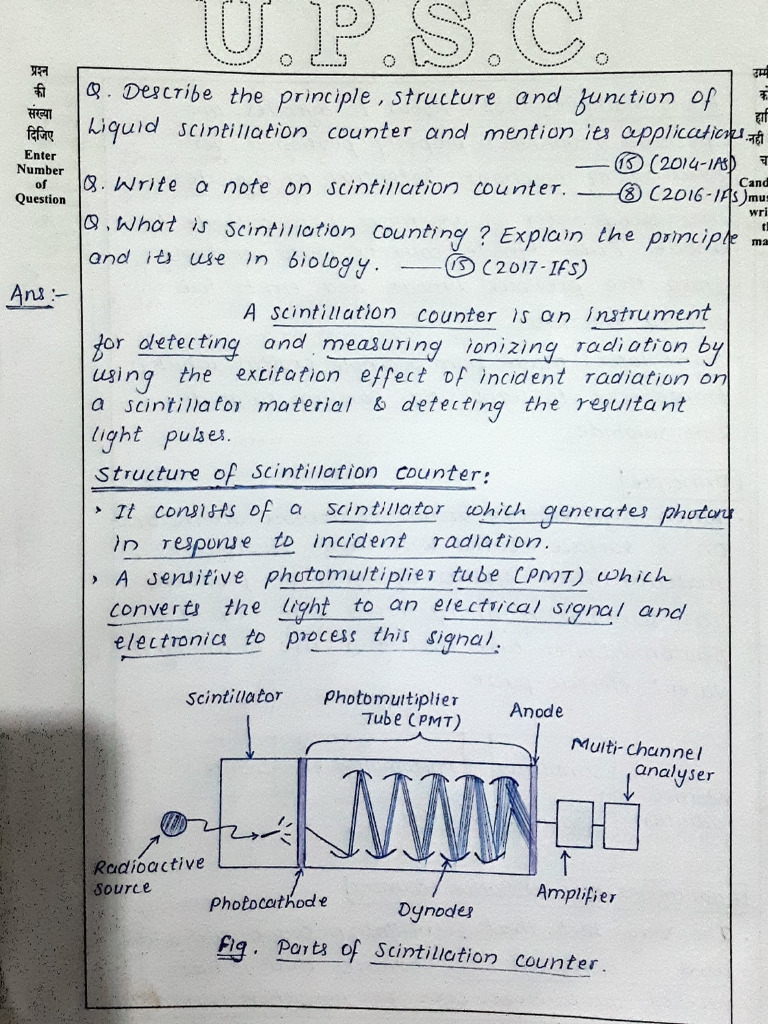 U.P.S.C.
प्रश्न
की
संख्या
दिजिए
Enter
Number
of
Question
Q. Describe the principle, structure and function of
Liquid scintillation counter and mention its applications.
— 15 (2014-IAS)
Q. Write a note on scintillation counter. — 8 (2016-IFS)
Q. What is scintillation counting? Explain the principle
and its use in biology. — 15 (2017-IFS)
Ans:-
A scintillation counter is an instrument
for detecting and measuring ionizing radiation by
using the excitation effect of incident radiation on
a scintillator material & detecting the resultant
light pulses.
Structure of Scintillation Counter:
› It consists of a scintillator which generates photons
in response to incident radiation.
› A sensitive photomultiplier tube (PMT) which
converts the light to an electrical signal and
electronics to process this signal.
Scintillator
Photomultiplier
Tube (PMT)
Anode
Multi-channel
analyser
Radioactive
source
Photocathode
Dynodes
Amplifier
Fig. Parts of Scintillation counter.